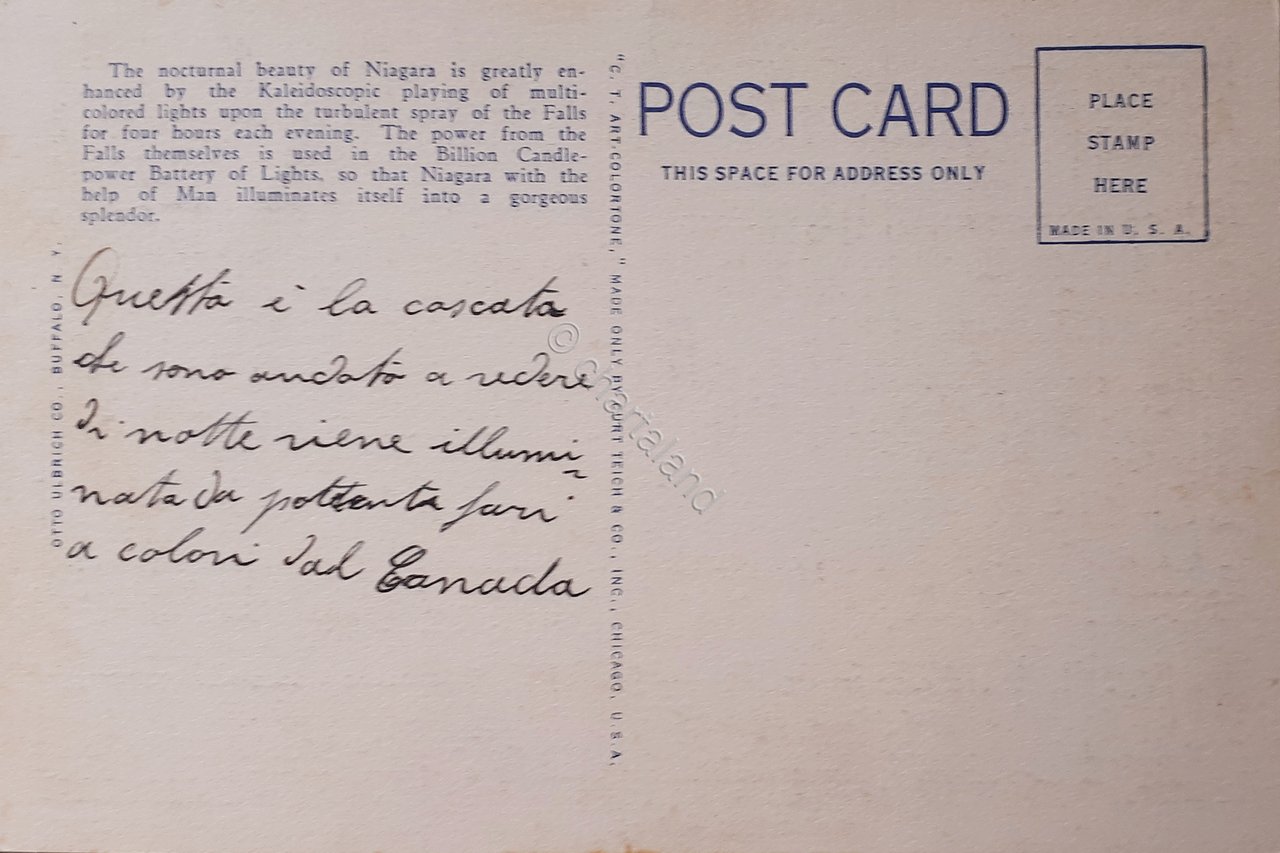 The nocturnal beauty of Niagara is greatly en-
hanced by the Kaleidoscopic playing of multi-
colored lights upon the turbulent spray of the Falls
for four hours each evening. The power from the
Falls themselves is used in the Billion Candle-
power Battery of Lights, so that Niagara with the
help of Man illuminates itself into a gorgeous
splendor.
OTTO ULBRICH CO., BUFFALO, N. Y.
Questa è la cascata
che sono andato a vedere
di notte viene illumi
nata da pottenta fari
a colori dal Canada
"C. T. ART-COLORTONE," MADE ONLY BY CURT TEICH & CO., INC., CHICAGO, U.S.A.
POST CARD
THIS SPACE FOR ADDRESS ONLY
PLACE
STAMP
HERE
MADE IN U. S. A.
© Chartaland